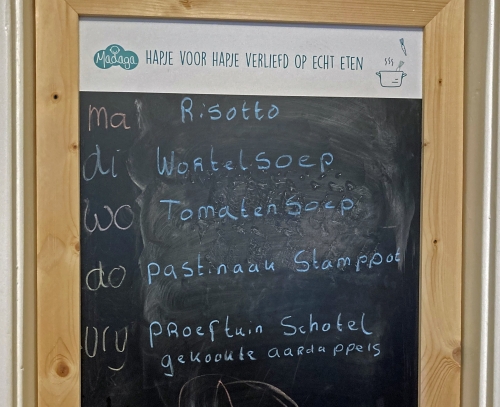 Madaga HAPJE VOOR HAPJE VERLIEFD OP ECHT ETEN
ma Risotto
di Wortelsoep
wo Tomatensoep
do Pastinaak Stamppot
vry Proeftuin Schotel
gekookte aardappels